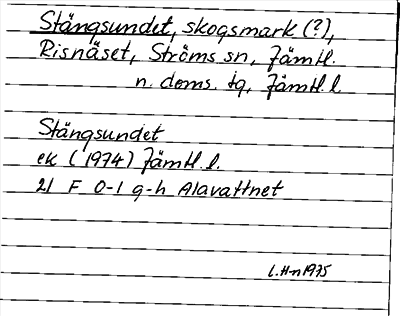 Stängsundet, skogsmark (?),
Risnäset, Ströms sn, Jämtl.
n. doms. tg, Jämtl. l
Stängsundet
ek (1974) Jämtl. l.
21 F 0-1 g-h Alavattnet
L. H-n 1975